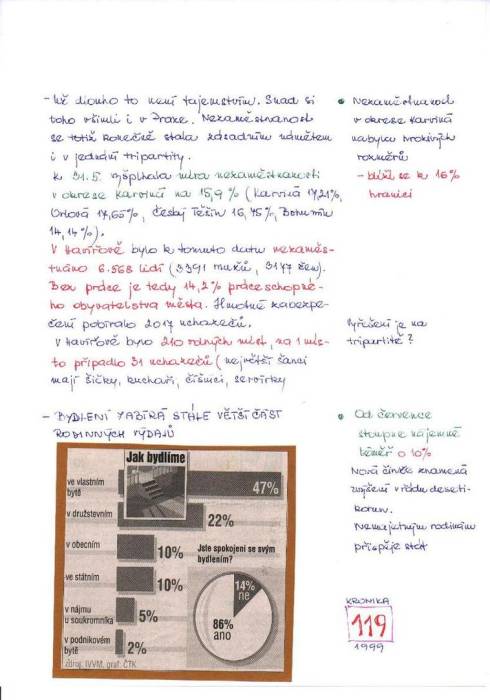 - Už dlouho to není tajemstvím. Snad si
toho všimli i v Praze. Nezaměstnanost
se totiž konečně stala zásadním námětem
i v jednání tripartity.
K 31.5. vyšplhala míra nezaměstnanosti
v okrese Karviná na 15,9 % (Karviná 17,21%,
Orlová 17,65%, Český Těšín 16,45%, Bohumín
14,14%).
V Havířově bylo k tomuto datu nezaměs-
tnáno 6.568 lidí (3391 mužů, 3177 žen).
Bez práce je tedy 14,2% práceschopné-
ho obyvatelstva města. Hmotné zabezpe-
čení pobíralo 2017 uchazečů.
V Havířově bylo 210 volných míst, na 1 mís-
to připadlo 31 uchazečů (největší šanci
mají šičky, kuchaři, číšníci, servírky
- BYDLENÍ ZABÍRÁ STÁLE VĚTŠÍ ČÁST
RODINNÝCH VÝDAJŮ
Jak bydlíme
ve vlastním
bytě
47%
v družstevním
22%
v obecním
10%
ve státním
10%
v nájmu
u soukromníka
5%
v podnikovém
bytě
2%
Jste spokojeni se svým
bydlením?
14%
ne
86%
ano
Zdroj: IVVM, graf. ČTK
• Nezaměstnanost
v okrese Karviná
nabyla hrozivých
rozměrů
- blíží se k 16%
hranici
Vyřešení je na
tripartitě?
• Od července
stoupne nájemné
téměř o 10%
Nová činže znamená
zvýšení v řádu deseti-
korun.
Nemajetným rodinám
přispěje stát
KRONIKA
119
1999